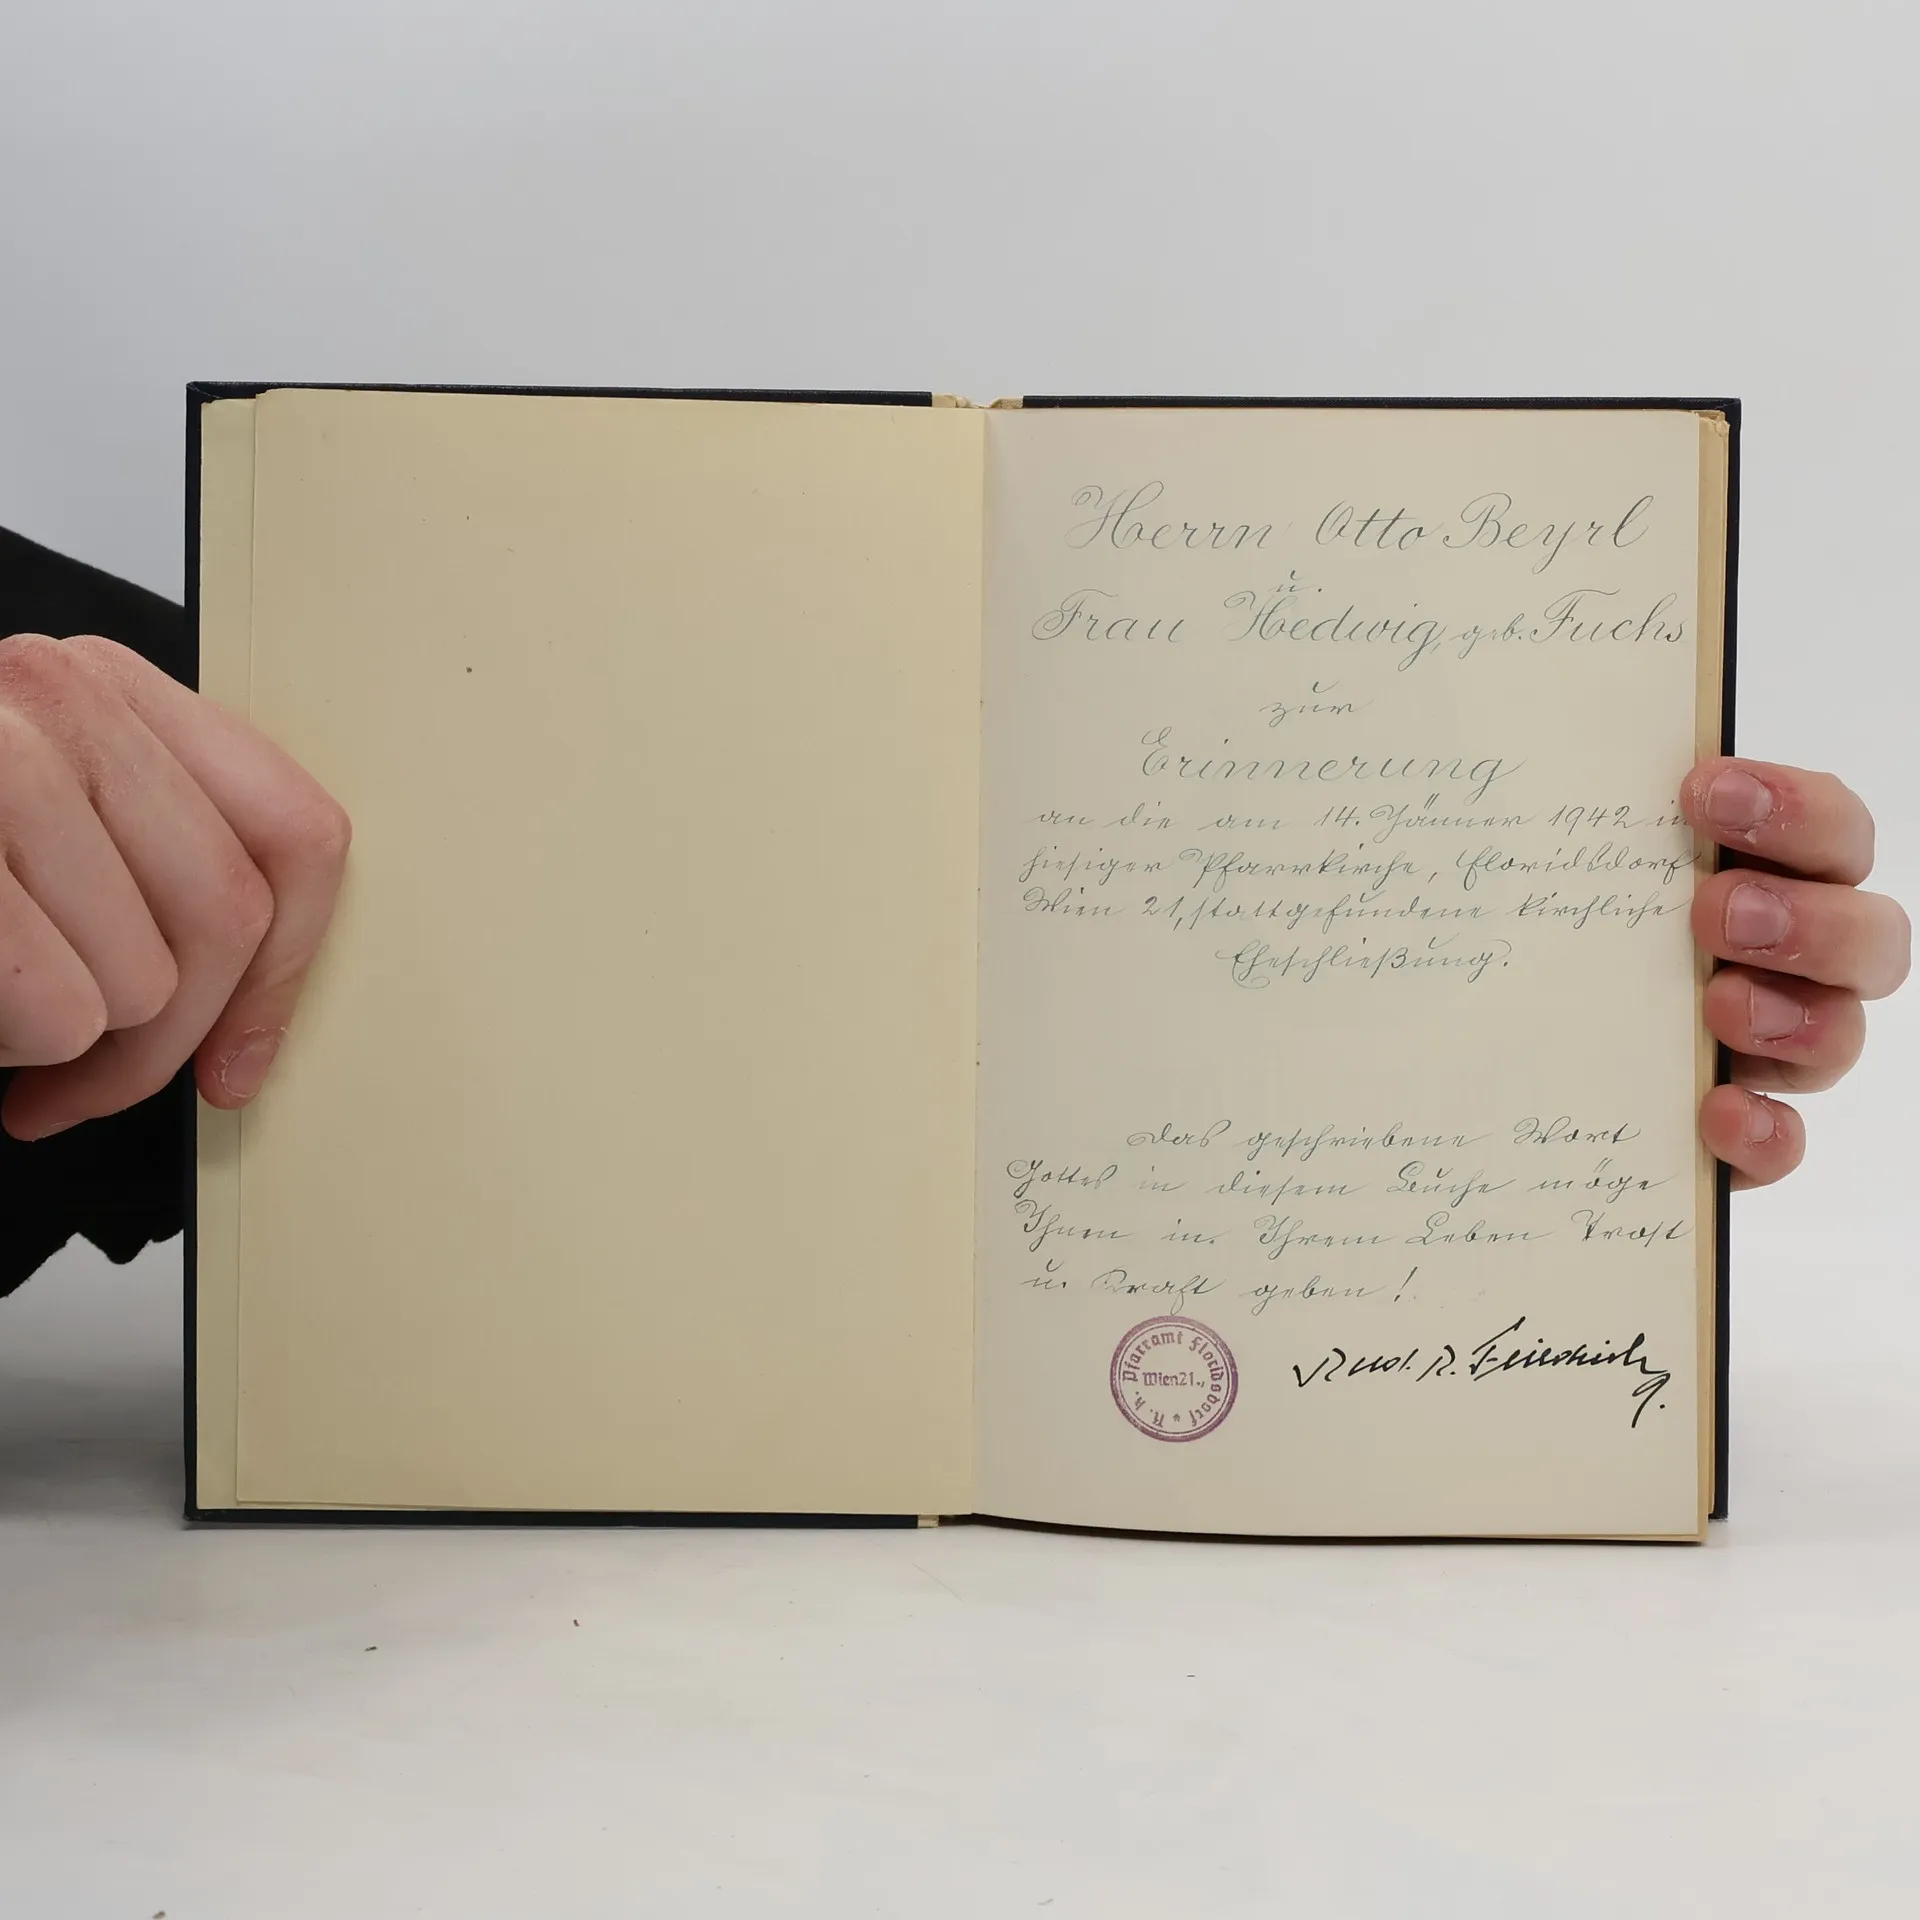 Herrn Otto Beyrl
u.
Frau Hedwig, geb. Fuchs
zur
Erinnerung
an die am 14. Jänner 1942 in
hiesiger Pfarrkirche, Floridsdorf
Wien 21, stattgefundene kirchliche
Eheschließung.
Das geschriebene Wort
Gottes in diesem Buche möge
Ihnen in Ihrem Leben Trost
u. Kraft geben!
R. k. Pfarramt Floridsdorf
Wien 21.,
Friedrich